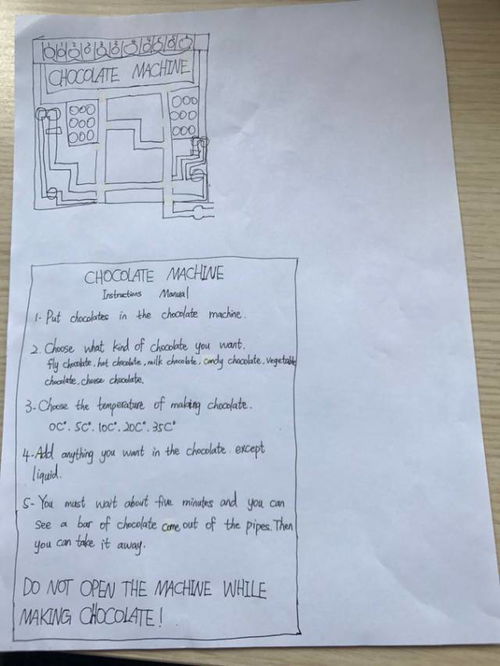 CHOCOLATE MACHINE
CHOCOLATE MACHINE
Instructions Manual
1- Put chocolates in the chocolate machine.
2. Choose what kind of chocolate you want.
fly chocolate, hot chocolate, milk chocolate, candy chocolate, vegetable
chocolate, cheese chocolate.
3- Choose the temperature of making chocolate.
0C°. 5C°. 10C°. 20C°. 35C°
4- Add anything you want in the chocolate. except
liquid.
5- You must wait about five minutes and you can
see a bar of chocolate come out of the pipes. Then
you can take it away.
DO NOT OPEN THE MACHINE WHILE
MAKING CHOCOLATE!